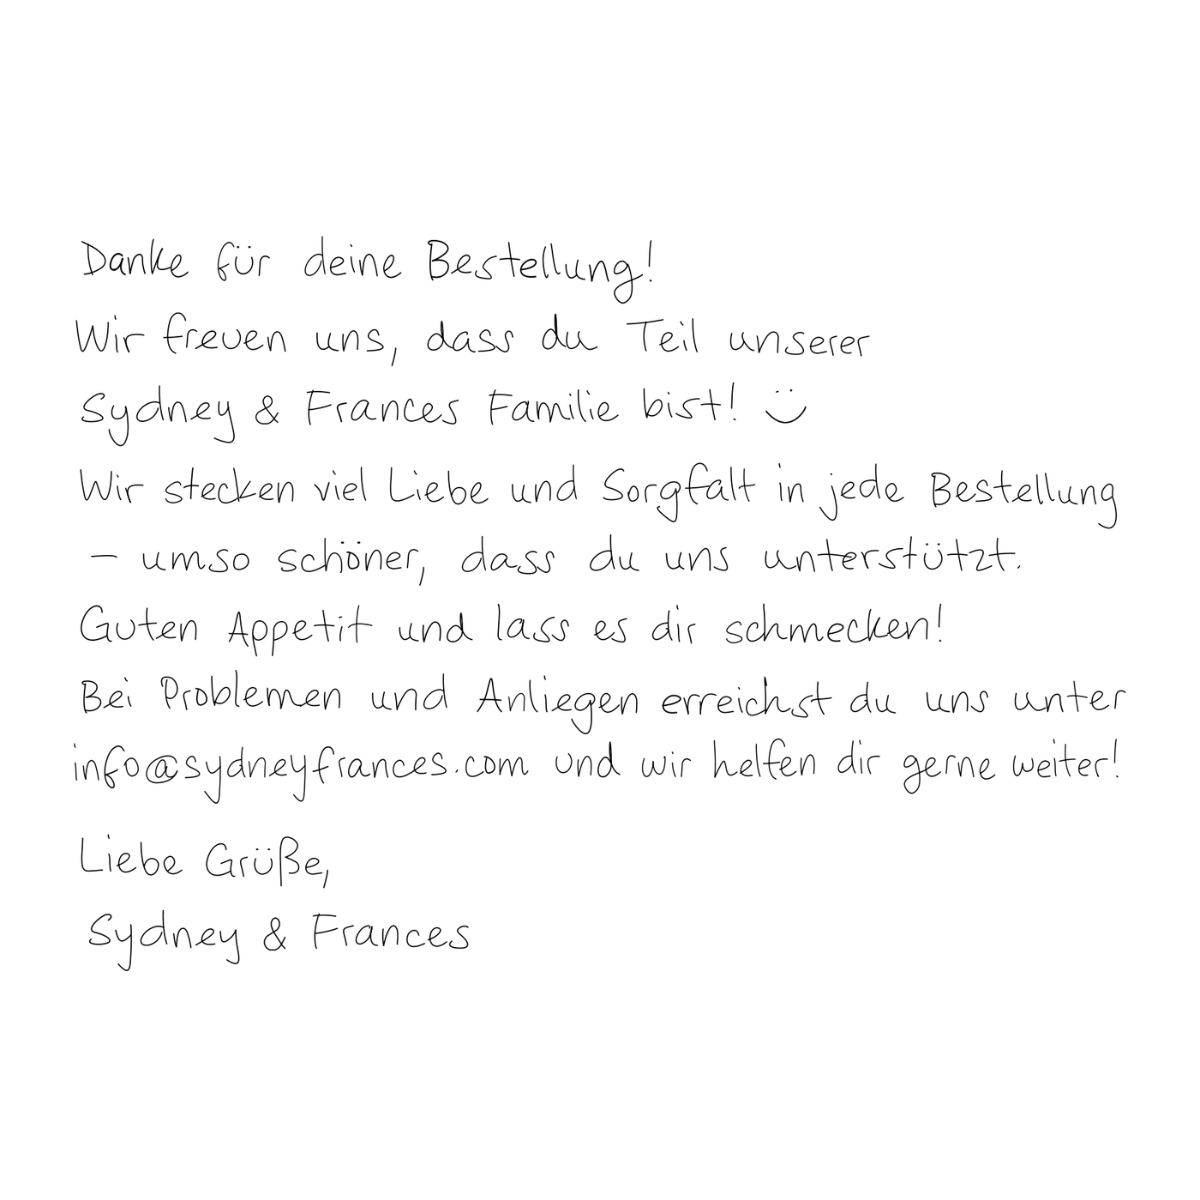 Danke für deine Bestellung!
Wir freuen uns, dass du Teil unserer
Sydney & Frances Familie bist! ü
Wir stecken viel Liebe und Sorgfalt in jede Bestellung
– umso schöner, dass du uns unterstützt.
Guten Appetit und lass es dir schmecken!
Bei Problemen und Anliegen erreichst du uns unter
info@sydneyfrances.com und wir helfen dir gerne weiter!
Liebe Grüße,
Sydney & Frances